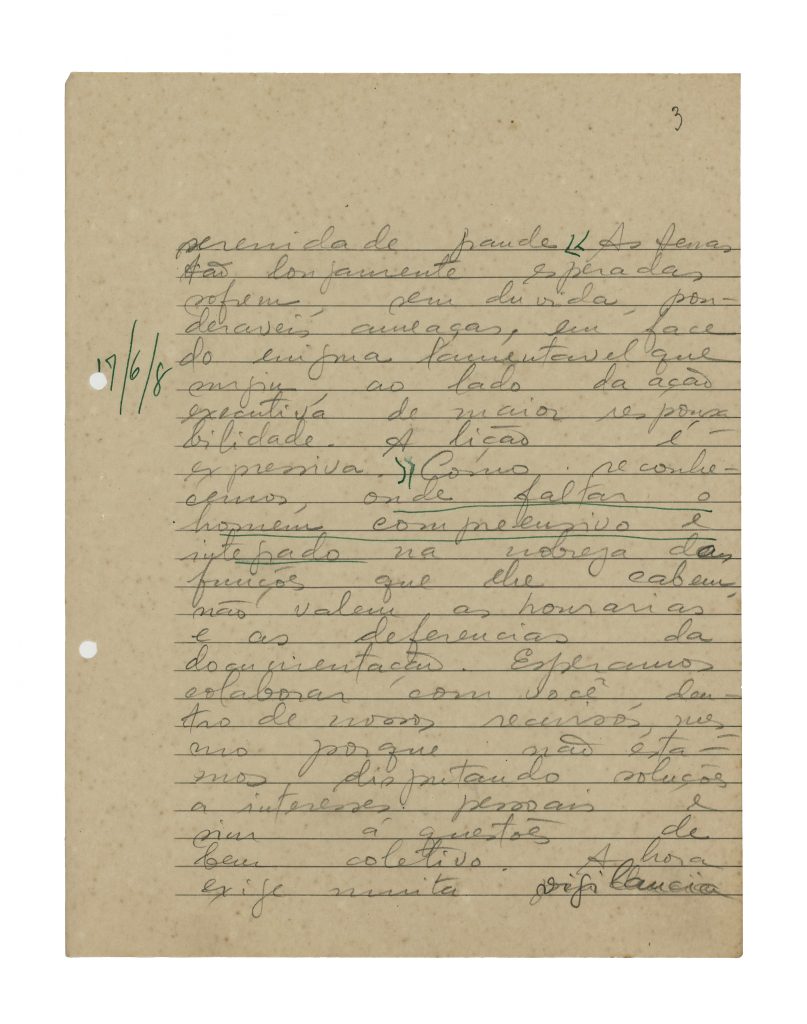 3
serenidade grande. << As ferias
tão longamente esperadas
sofrem, sem duvida, pon-
deraveis ameaças, em face
do enigma lamentavel que
17/6/8
surgiu, ao lado da ação
executiva de maior responsa-
bilidade. A lição é
expressiva. >> Como reconhe-
cemos, onde faltar o
homem compreensivo e
integrado na nobreza das
funções que lhe cabem,
não valem as honrarias
e as deferencias da
documentação. Esperamos
colaborar com você den-
tro de nossos recursos, mes-
mo porque não esta-
mos disputando soluções
a interesses pessoais e
sim á questões de
bem coletivo. A hora
exige muita vigilancia